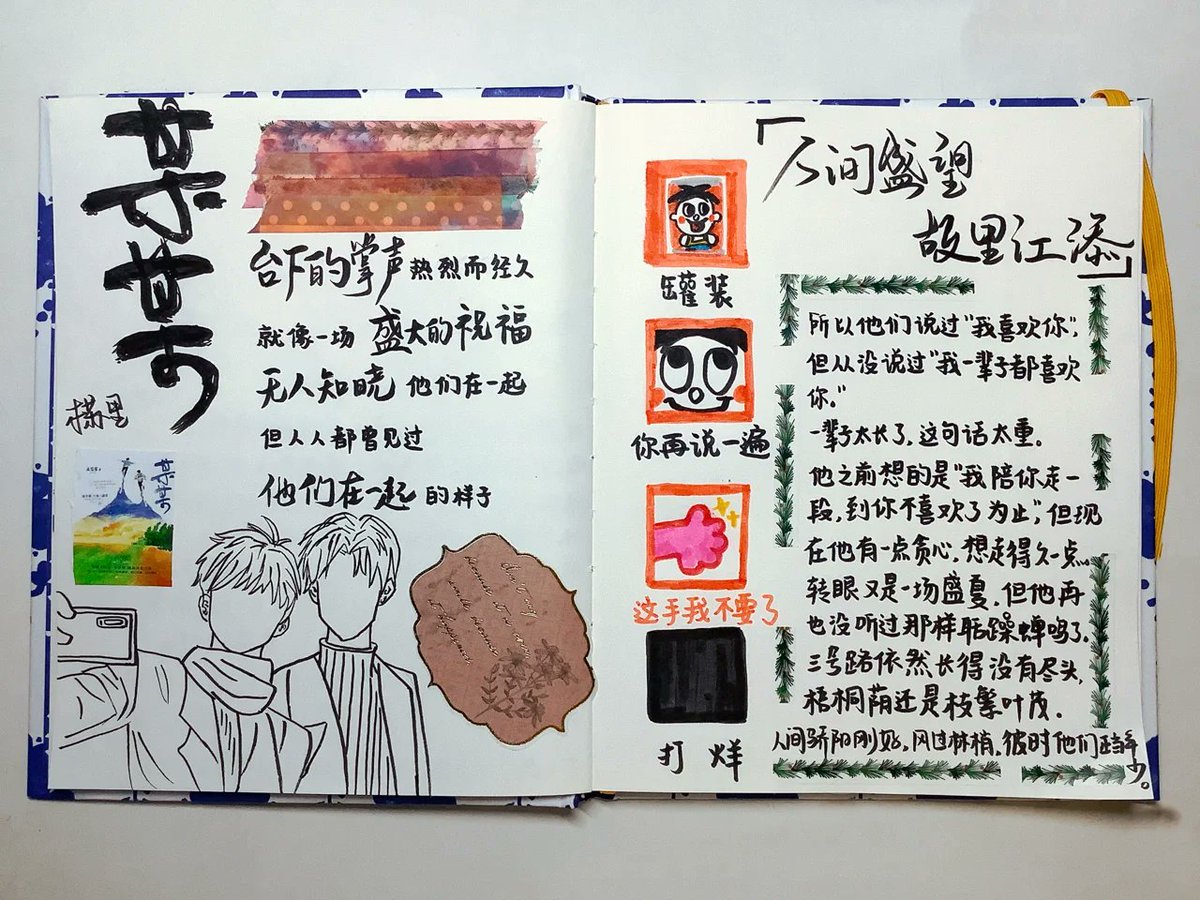 某某
木苏里
某某
台下的掌声热烈而经久
就像一场 盛大的祝福
无人知晓 他们在一起
但人人都曾见过
他们在一起 的样子
「人间盛望
故里江添」
罐装
你再说一遍
这手我不要了
打烊
所以他们说过“我喜欢你”,
但从没说过“我一辈子都喜欢
你。”
一辈子太长了,这句话太重。
他之前想的是“我陪你走一
段,到你不喜欢了为止”,但现
在他有一点贪心,想走得久一点...
转眼又是一场盛夏,但他再
也没听过那样聒躁蝉鸣了.
三号路依然长得没有尽头,
梧桐荫还是枝繁叶茂.
人间骄阳刚好,风过林梢,彼时他们正当年少。